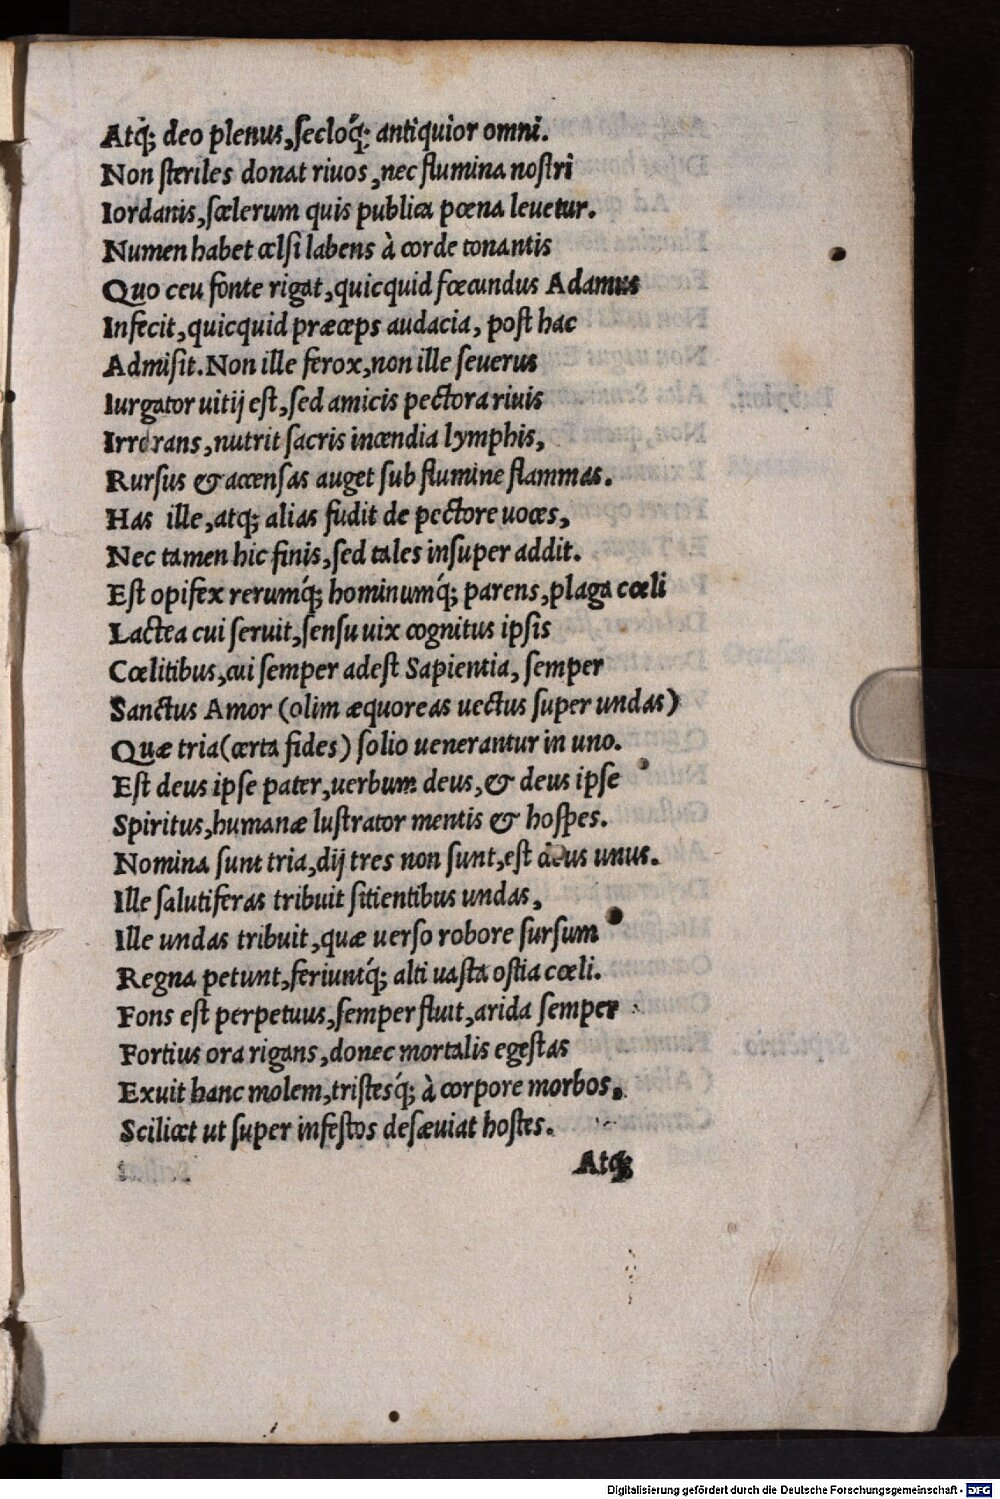 Atq́; deo plenus, secloq́; antiquior omni.
Non steriles donat riuos, nec flumina nostri
Iordanis, scelerum quis publica pœna leuetur.
Numen habet celsi labens à corde tonantis
Quo ceu fonte rigat, quicquid fœcundus Adamus
Infecit, quicquid præceps audacia, post hac
Admisit. Non ille ferox, non ille seuerus
Iurgator uitij est, sed amicis pectora riuis
Irrorans, nutrit sacris incendia lymphis,
Rursus & accensas auget sub flumine flammas.
Has ille, atq; alias fudit de pectore uoces,
Nec tamen hic finis, sed tales insuper addit.
Est opifex rerumq́; hominumq́; parens, plaga cœli
Lactea cui seruit, sensu uix cognitus ipsis
Cœlitibus, cui semper adest Sapientia, semper
Sanctus Amor (olim æquoreas uectus super undas)
Quæ tria (certa fides) solio uenerantur in uno.
Est deus ipse pater, uerbum deus, & deus ipse
Spiritus, humanæ lustrator mentis & hospes.
Nomina sunt tria, dij tres non sunt, est deus unus.
Ille salutiferas tribuit sitientibus undas,
Ille undas tribuit, quæ uerso robore sursum
Regna petunt, feriuntq́; alti uasta ostia cœli.
Fons est perpetuus, semper fluit, arida semper
Fortius ora rigans, donec mortalis egestas
Exuit hanc molem, tristesq́; à corpore morbos,
Scilicet ut super infestos desæuiat hostes.
Atq;
Digitalisierung gefördert durch die Deutsche Forschungsgemeinschaft - DFG